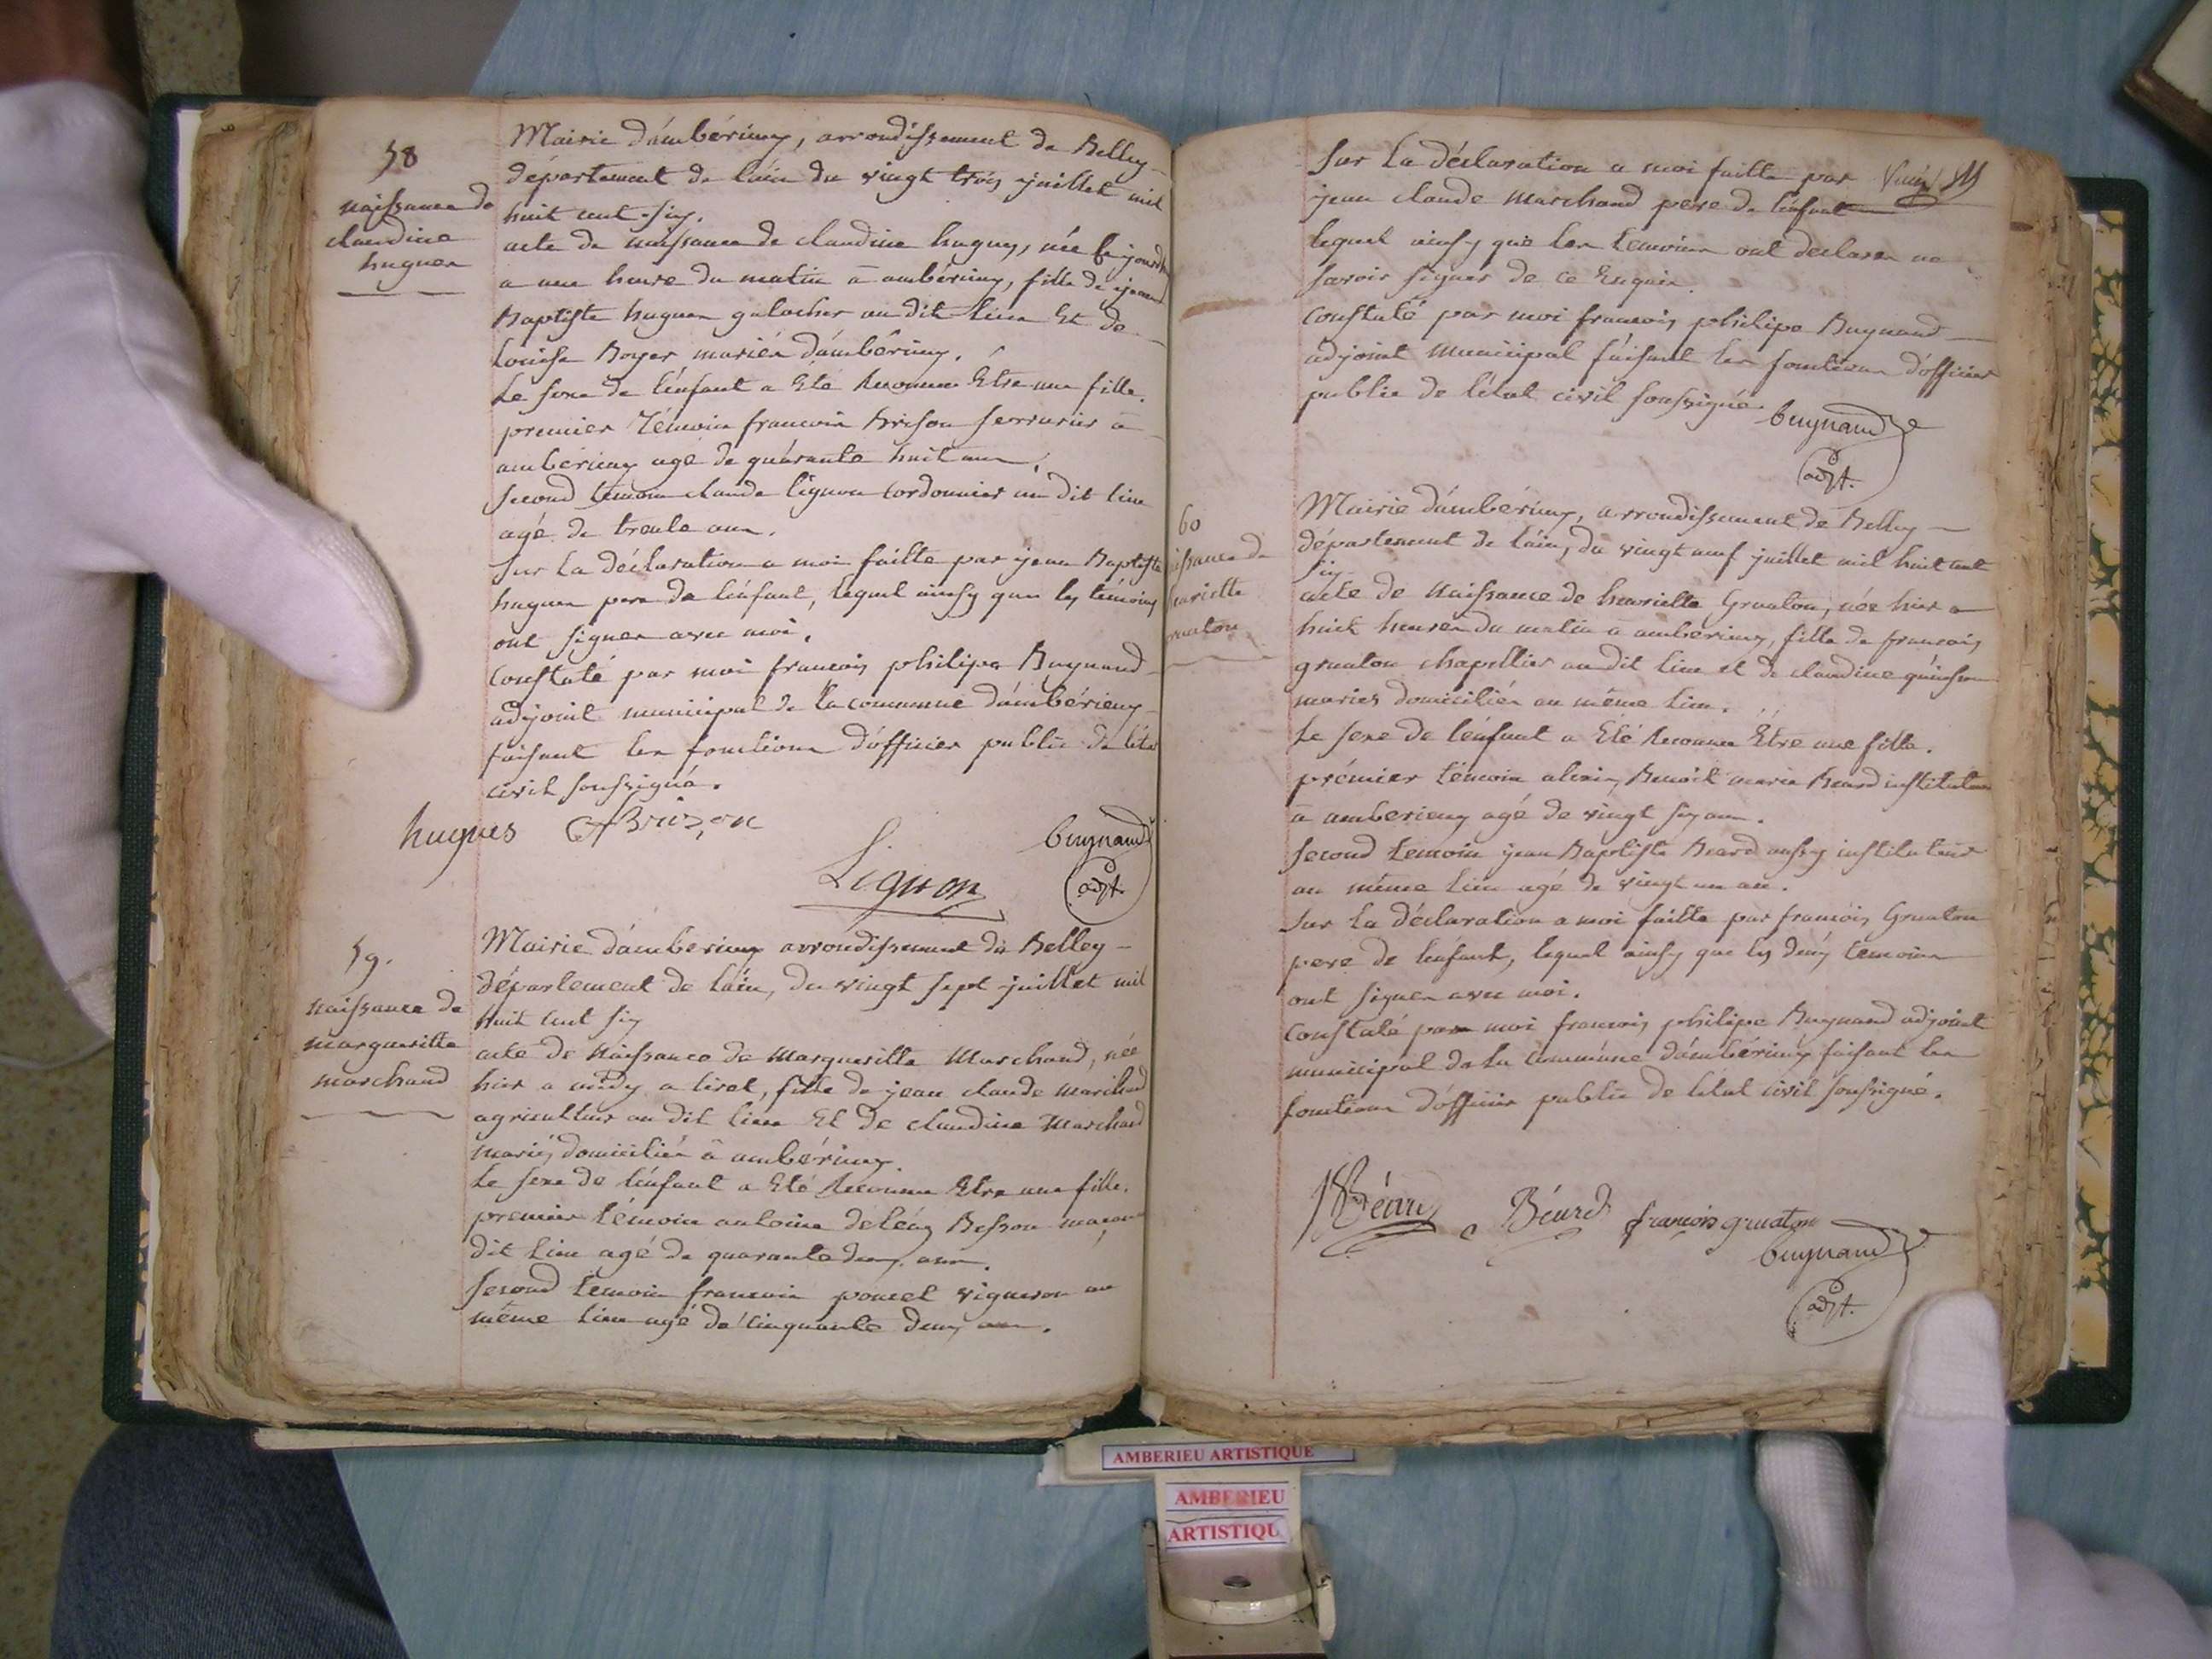 58
naissance de
claudine
hugues
Mairie d'ambérieuy, arrondissement de Belley
département de l'ain du vingt trois juillet mil
huit cent six.
acte de naissance de claudine hugues, née
a une heure du matin a ambérieuy, fille de jean
Baptiste hugues galocher au dit lieu Et de
Louise Boyer mariés d'ambérieuy.
Le sexe de l'enfant a Eté Reconnu Etre une fille.
premier Témoin francois Brison serrurier a
ambérieuy agé de quarante huit ans.
second temoin claude lignon cordonnier au dit lieu
agé de trente ans.
sur La déclaration a moi faitte par jean Baptiste
hugues pere de l'enfant, lequel ainsy que les témoins
ont signer avec moi.
Constaté par moi francois philipe Bugnand
adjoint municipal de la commune d'ambérieuy
faisant les fonctions d'officier public de l'état
civil soussigné.
hugues Brizon
Lignon
bugnand
adjt.
59.
naissance de
margueritte
marchand
Mairie d'amberieuy arrondissement de Belley
département de l'ain, du vingt sept juillet mil
huit cent six
acte de Naissance de Margueritte Marchand, née
hier a midy a tiret, fille de jean claude marchand
agriculteur au dit lieu Et de claudine Marchand
mariés domiciliés a ambérieuy.
Le sexe de l'enfant a Eté Reconnu Etre une fille.
premier témoin antoine Besson maçon
dit Lieu agé de quarante deux ans.
second temoin francois poncet vigneron au
même Lieu agé de cinquante deux ans.
sur La déclaration a moi faitte par
jean claude Marchand pere de l'enfant
lequel ainsy que les témoins ont declarer ne
savoir signer de ce Enquis.
Constaté par moi francois philipe Bugnand
adjoint Municipal faisant les fonctions d'officier
public de l'état civil soussigné.
bugnand
adjt.
60
issance de
enriette
ruaton
Mairie d'ambérieuy, arrondissement de Belley
département de l'ain, du vingt neuf juillet mil huit cent
six
acte de Naissance de henriette Gruaton, née hier a
huit heures du matin a amberieuy, fille de francois
gruaton chapellier au dit lieu et de claudine
mariés domiciliés au même lieu.
Le sexe de l'enfant a Eté Reconnu Etre une fille.
prémier témoin alexis, Benoit marie Beard instituteur
a amberieuy agé de vingt six ans.
second temoin jean Baptiste Beard aussy instituteur
au même lieu agé de vingt un an.
sur la déclaration a moi faitte par francois Gruaton
pere de l'enfant, lequel ainsy que les deux temoins
ont signer avec moi.
Constaté par moi francois philipe Bugnand adjoint
municipal de la commune d'ambérieuy faisant les
fonctions d'officier public de l'état civil soussigné.
JBBéard Béard francois gruaton
bugnand
adjt.
AMBERIEU ARTISTIQUE
AMBERIEU
ARTISTIQU